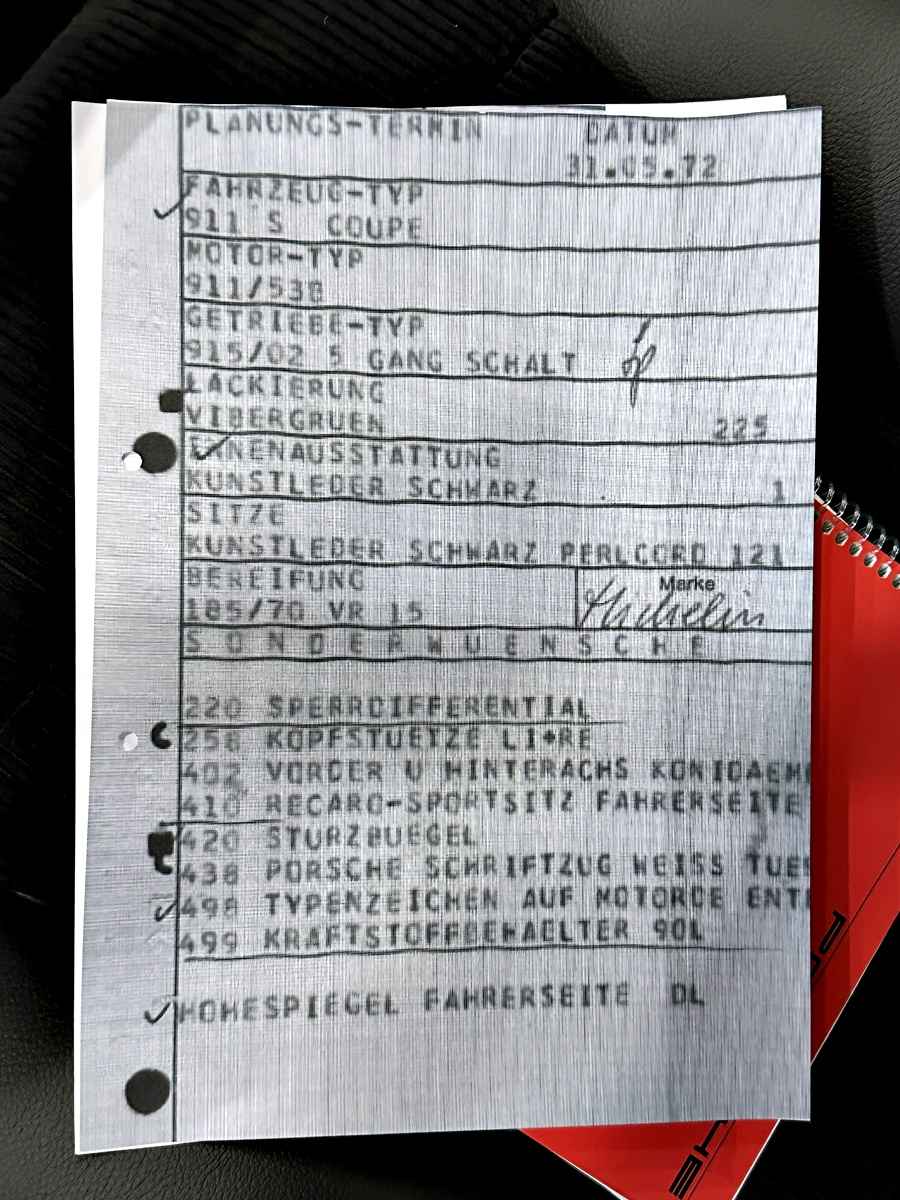 PLANUNGS-TERMIN DATUM
31.05.72
FAHRZEUG-TYP
911 S COUPE
MOTOR-TYP
911/53B
GETRIEBE-TYP
915/02 5 GANG SCHALT
LACKIERUNG
VIBERGRUEN 225
INNENAUSSTATTUNG
KUNSTLEDER SCHWARZ 1
SITZE
KUNSTLEDER SCHWARZ PERLCORD 121
BEREIFUNG Marke
185/70 VR 15 Michelin
SONDERWUENSCHE
220 SPERRDIFFERENTIAL
258 KOPFSTUETZE LI+RE
402 VORDER U HINTERACHS KONIDAEM
410 RECARO-SPORTSITZ FAHRERSEITE
420 STURZBUEGEL
438 PORSCHE SCHRIFTZUG WEISS TUE
498 TYPENZEICHEN AUF MOTORDE ENT
499 KRAFTSTOFFBEHAELTER 90L
HOHESPIEGEL FAHRERSEITE DL